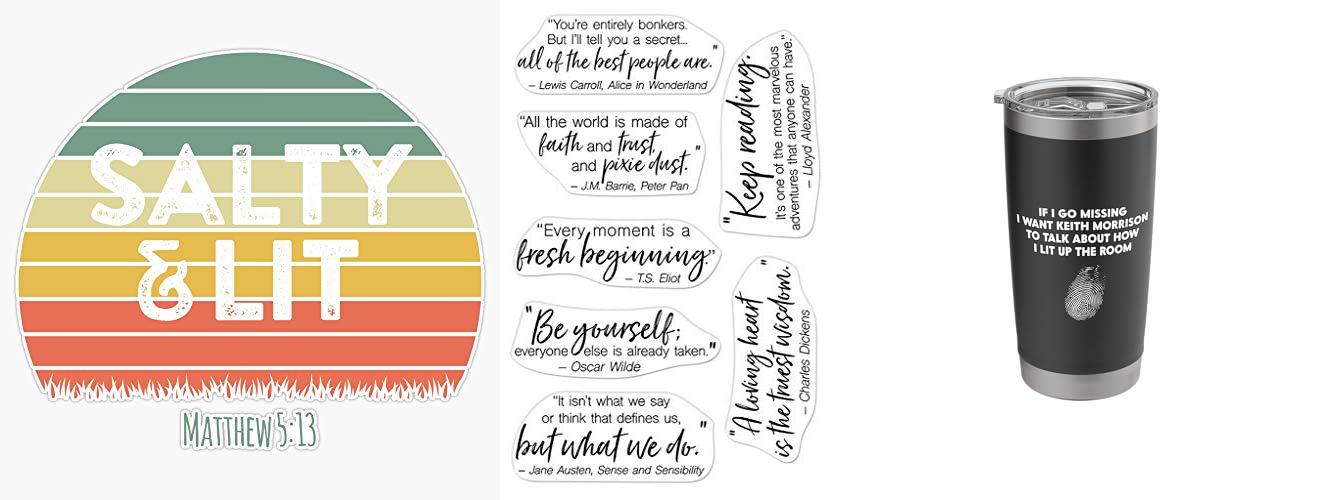 SALTY
& LIT
MATTHEW 5:13
"You're entirely bonkers.
But I'll tell you a secret...
all of the best people are."
– Lewis Carroll, Alice in Wonderland
"All the world is made of
faith and trust,
and pixie dust."
– J.M. Barrie, Peter Pan
"Every moment is a
fresh beginning."
– T.S. Eliot
"Be yourself;
everyone else is already taken."
– Oscar Wilde
"It isn't what we say
or think that defines us,
but what we do."
– Jane Austen, Sense and Sensibility
"Keep reading.
It's one of the most marvelous
adventures that anyone can have."
– Lloyd Alexander
"A loving heart
is the truest wisdom."
– Charles Dickens
IF I GO MISSING
I WANT KEITH MORRISON
TO TALK ABOUT HOW
I LIT UP THE ROOM